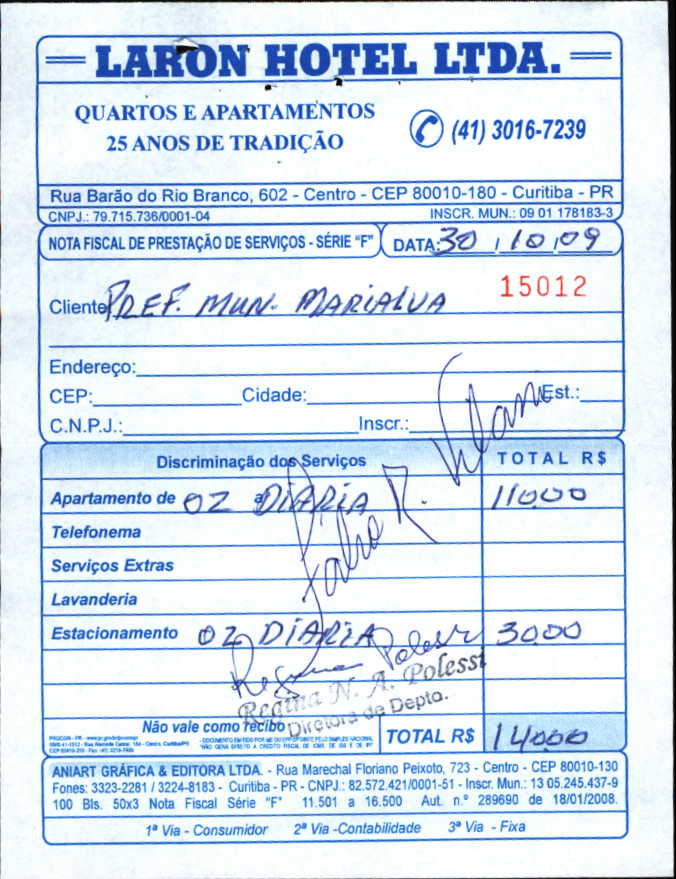 LARON HOTEL LTDA.
QUARTOS E APARTAMENTOS
25 ANOS DE TRADIÇÃO
(41) 3016-7239
Rua Barão do Rio Branco, 602 - Centro - CEP 80010-180 - Curitiba - PR
CNPJ.: 79.715.736/0001-04 INSCR. MUN.: 09 01 178183-3
NOTA FISCAL DE PRESTAÇÃO DE SERVIÇOS - SÉRIE "F" DATA: 30 / 10 / 09
15012
Cliente PREF. MUN. MARIALVA
Endereço:
CEP: Cidade: Est.:
C.N.P.J.: Inscr.:
Discriminação dos Serviços TOTAL R$
Apartamento de 02 DIÁRIA 11000
Telefonema
Serviços Extras
Lavanderia
Estacionamento 02 DIÁRIA 3000
Regina Polessi
Regina N. A. Polessi
Diretora de Depto.
Não vale como recibo
TOTAL R$ 14000
ANIART GRÁFICA & EDITORA LTDA. - Rua Marechal Floriano Peixoto, 723 - Centro - CEP 80010-130
Fones: 3323-2281 / 3224-8183 - Curitiba - PR - CNPJ.: 82.572.421/0001-51 - Inscr. Mun.: 13 05.245.437-9
100 Bls. 50x3 Nota Fiscal Série "F" 11.501 a 16.500 Aut. n.º 289690 de 18/01/2008.
1ª Via - Consumidor 2ª Via -Contabilidade 3ª Via - Fixa